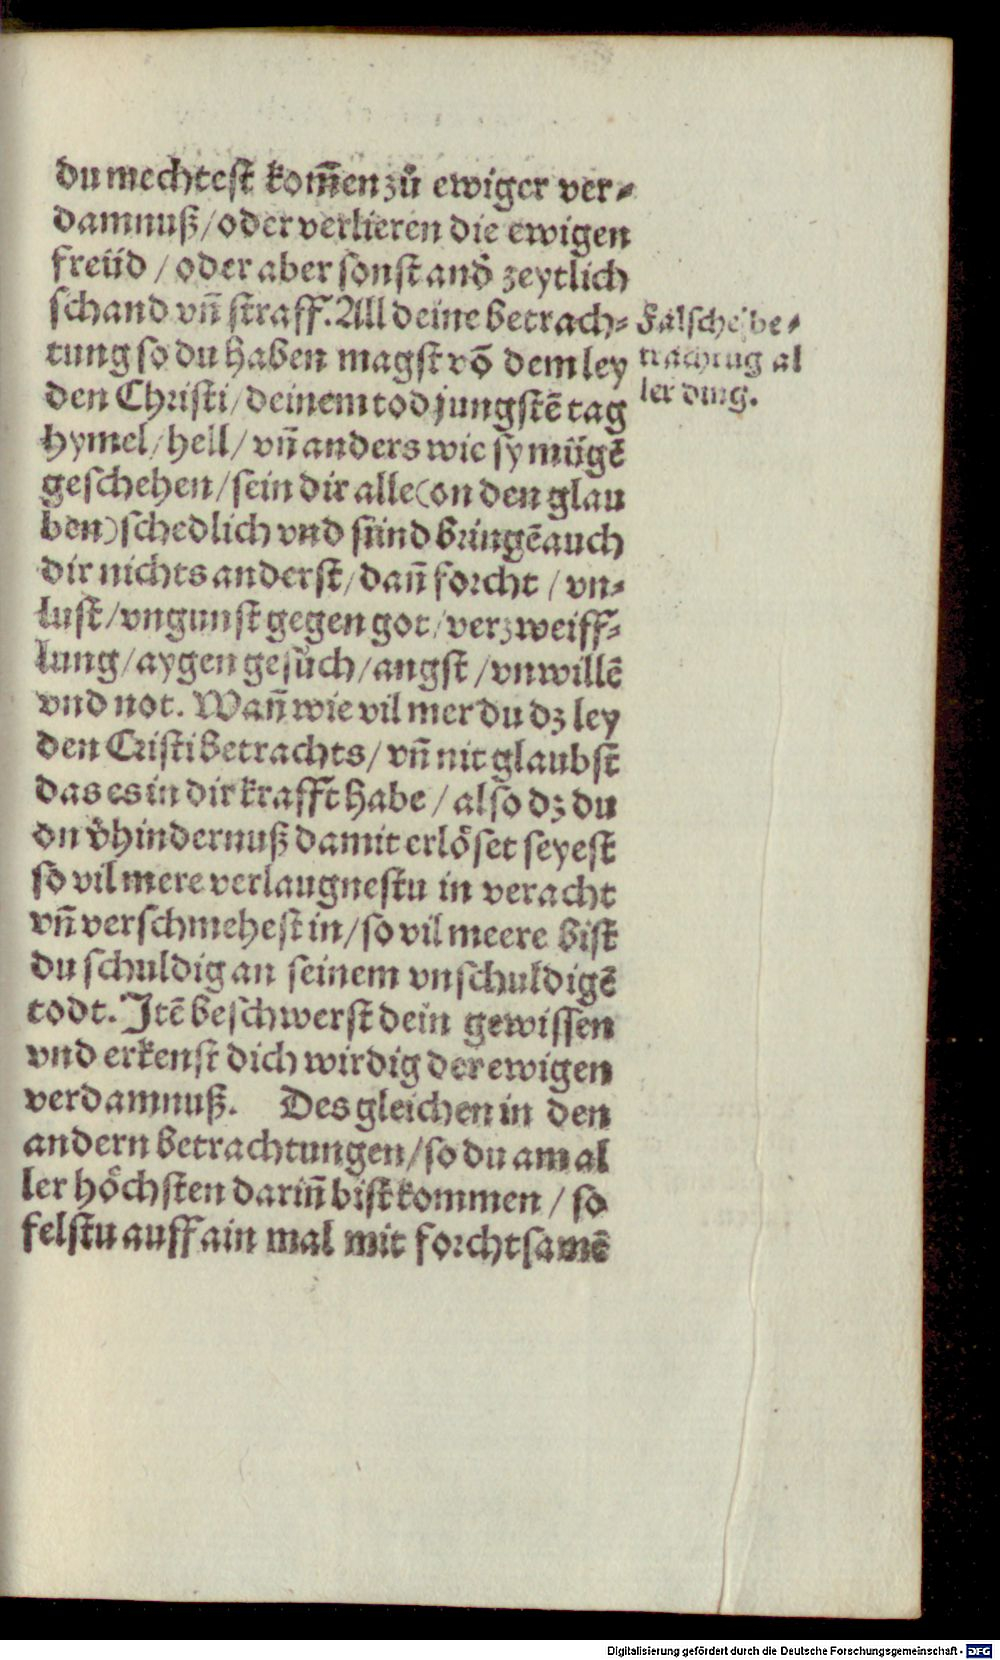 du mechtest kom̃en zů ewiger ver⸗
damnuß/oder verlieren die ewigen
freüd / oder aber sonst and̕ zeytlich
schand vn̄ straff. All deine betrach⸗
tung so du haben magst võ dem ley
den Christi/deinem tod jungstẽ tag
hymel/hell/ vn̄ anders wie sy mügẽ
geschehen/sein dir alle(on den glau
ben)schedlich vnd sünd bringẽ auch
dir nichts anderst/dan̄ forcht / vn⸗
lust/vngunst gegen got/verzweiff⸗
lung/aygen gesůch/angst/vnwillẽ
vnd not. Wan̄ wie vil mer du dz ley
den Cristi betrachts/vn̄ nit glaubst
das es in dir krafft habe / also dz du
on v̕hindernuß damit erlöset seyest
so vil mere verlaugnestu in veracht
vn̄ verschmehest in/so vil meere bist
du schuldig an seinem vnschuldigẽ
todt. Itẽ beschwerst dein gewissen
vnd erkenst dich wirdig der ewigen
verdamnuß. Des gleichen in den
andern betrachtungen/so du am al
ler höchsten darin̄ bist kommen / so
felstu auff ain mal mit forchtsamẽ
Falsche be⸗
trachtũg al
ler ding.
Digitalisierung gefördert durch die Deutsche Forschungsgemeinschaft - DFG